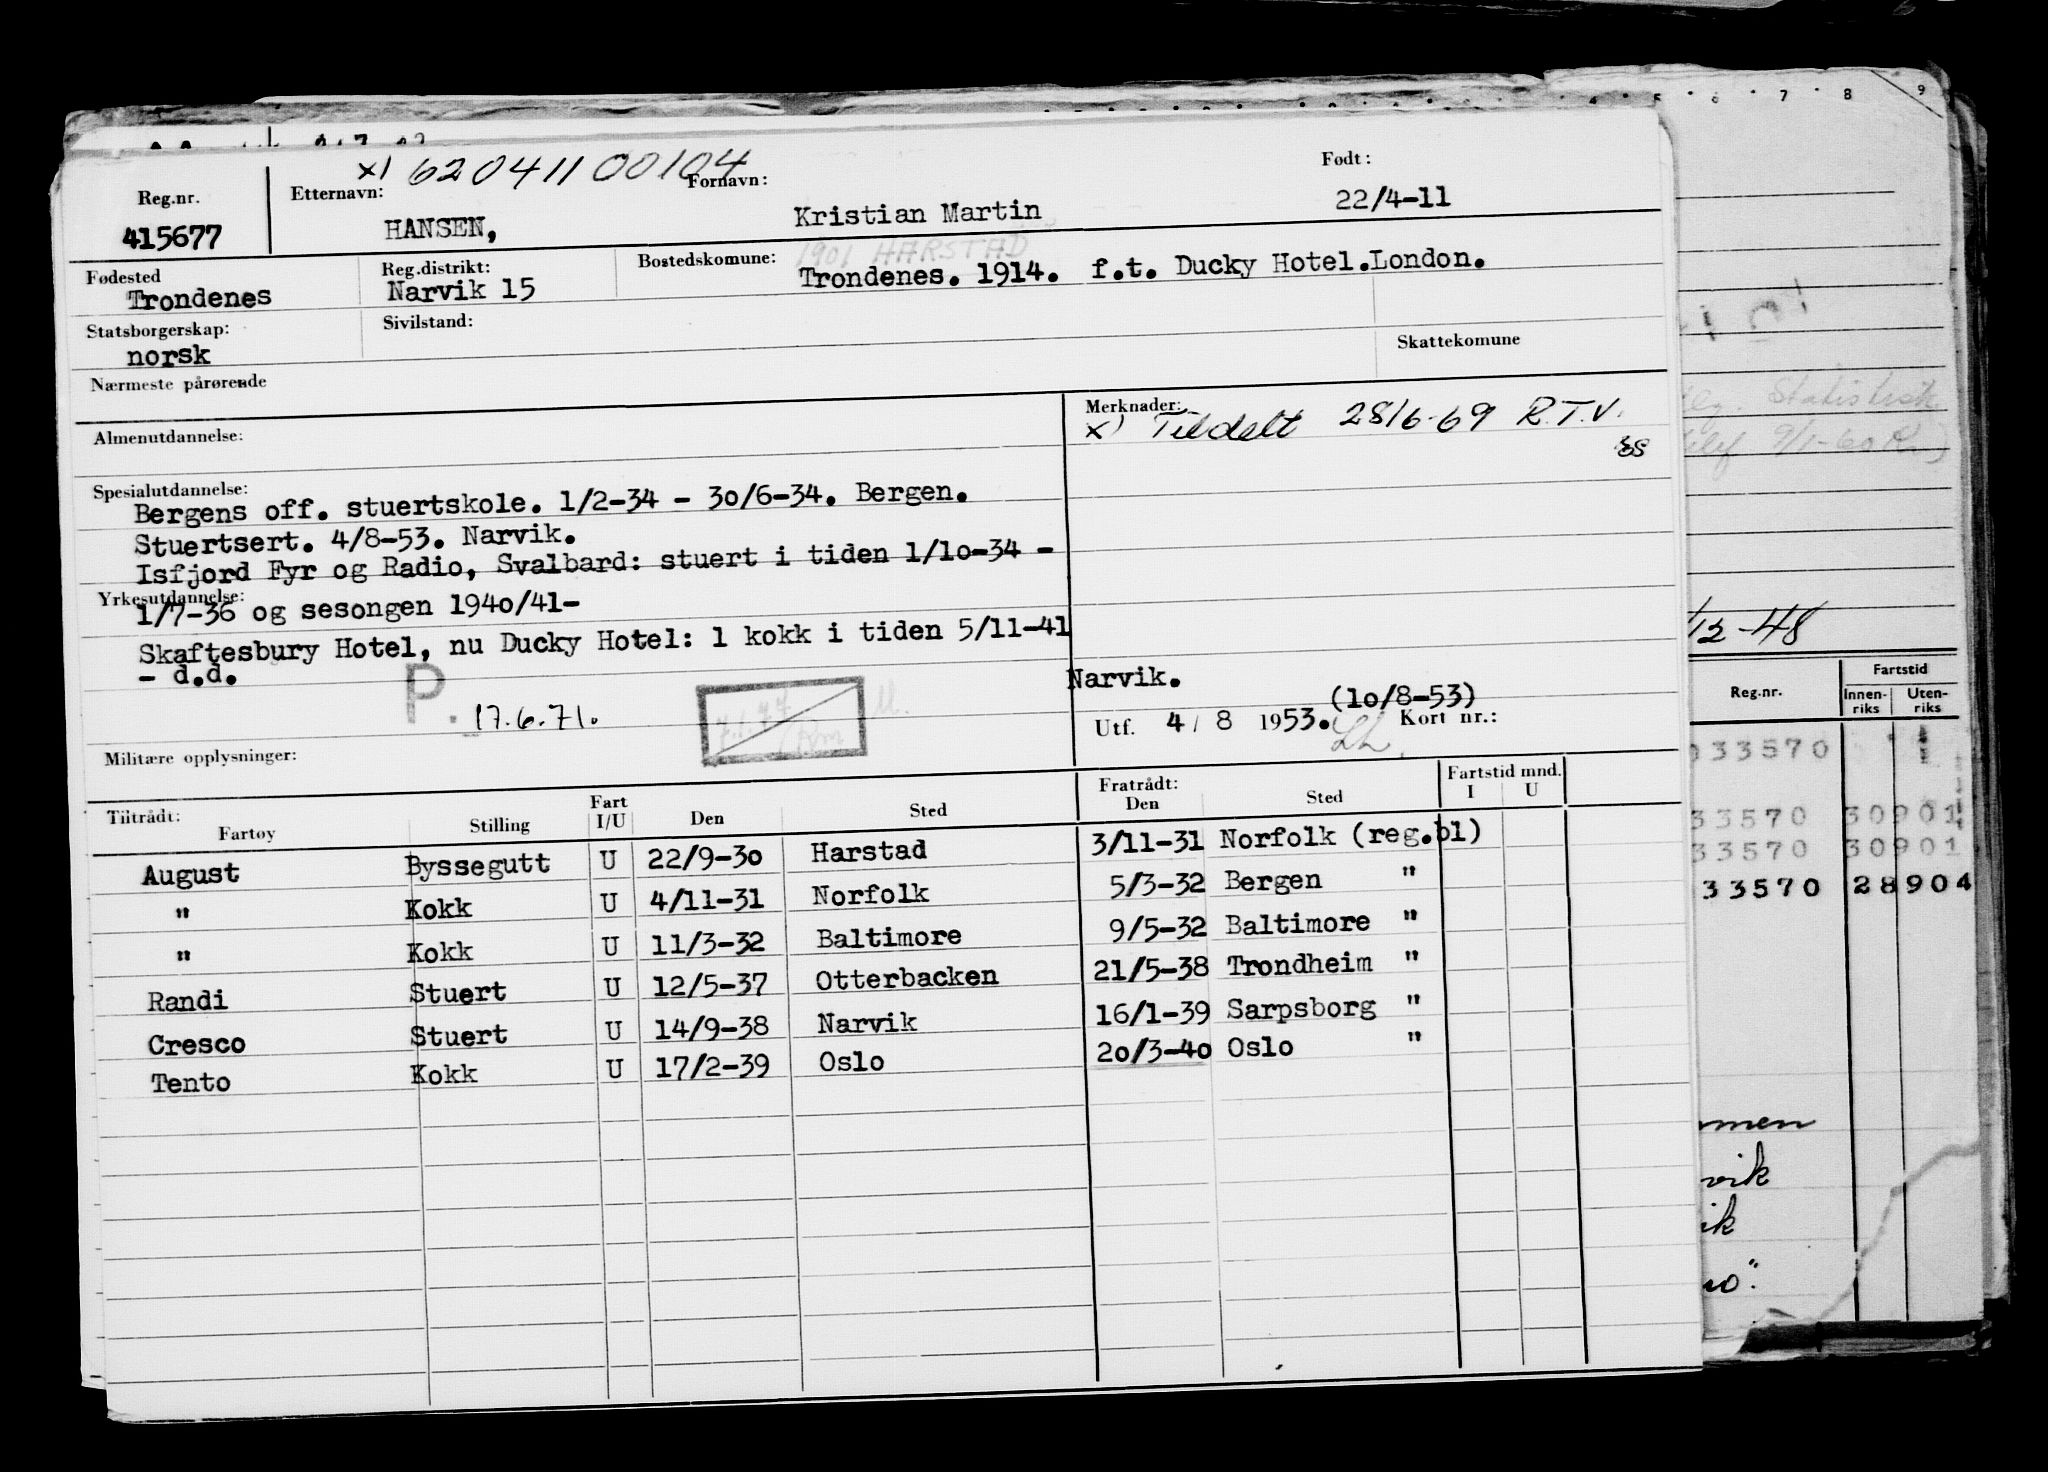 4 5 6 7 8 9
x) 62041100104
Reg.nr. Etternavn: Fornavn: Født:
415677 HANSEN, Kristian Martin 22/4-11
1901 HARSTAD
Fødested Reg.distrikt: Bostedskomune:
Trondenes Narvik 15 Trondenes. 1914. f.t. Ducky Hotel.London.
Statsborgerskap: Sivilstand: Skattekomune
norsk
Nærmeste pårørende
Merknader:
x) Tildelt 28/6-69 R.T.V.
Almenutdannelse:
Spesialutdannelse:
Bergens off. stuertskole. 1/2-34 - 30/6-34. Bergen.
Stuertsert. 4/8-53. Narvik.
Isfjord Fyr og Radio, Svalbard: stuert i tiden 1/10-34 -
Yrkesutdannelse:
1/7-36 og sesongen 1940/41-
Skaftesbury Hotel, nu Ducky Hotel: 1 kokk i tiden 5/11-41
- d.d.
P. 17.6.71.
Narvik.
(10/8-53)
Utf. 4 / 8 1953. Kort nr.:
Militære opplysninger:
Tiltrådt: Fratrådt: Fartstid mnd.
Fartøy Stilling Fart I/U Den Sted Den Sted I U
August Byssegutt U 22/9-30 Harstad 3/11-31 Norfolk (reg.bl)
" Kokk U 4/11-31 Norfolk 5/3-32 Bergen "
" Kokk U 11/3-32 Baltimore 9/5-32 Baltimore "
Randi Stuert U 12/5-37 Otterbacken 21/5-38 Trondheim "
Cresco Stuert U 14/9-38 Narvik 16/1-39 Sarpsborg "
Tento Kokk U 17/2-39 Oslo 20/3-40 Oslo "
Statistisk
9/1-60
/12-48
Reg.nr. Fartstid
Innen-riks Uten-riks
33570
33570 30901
33570 30901
33570 28904